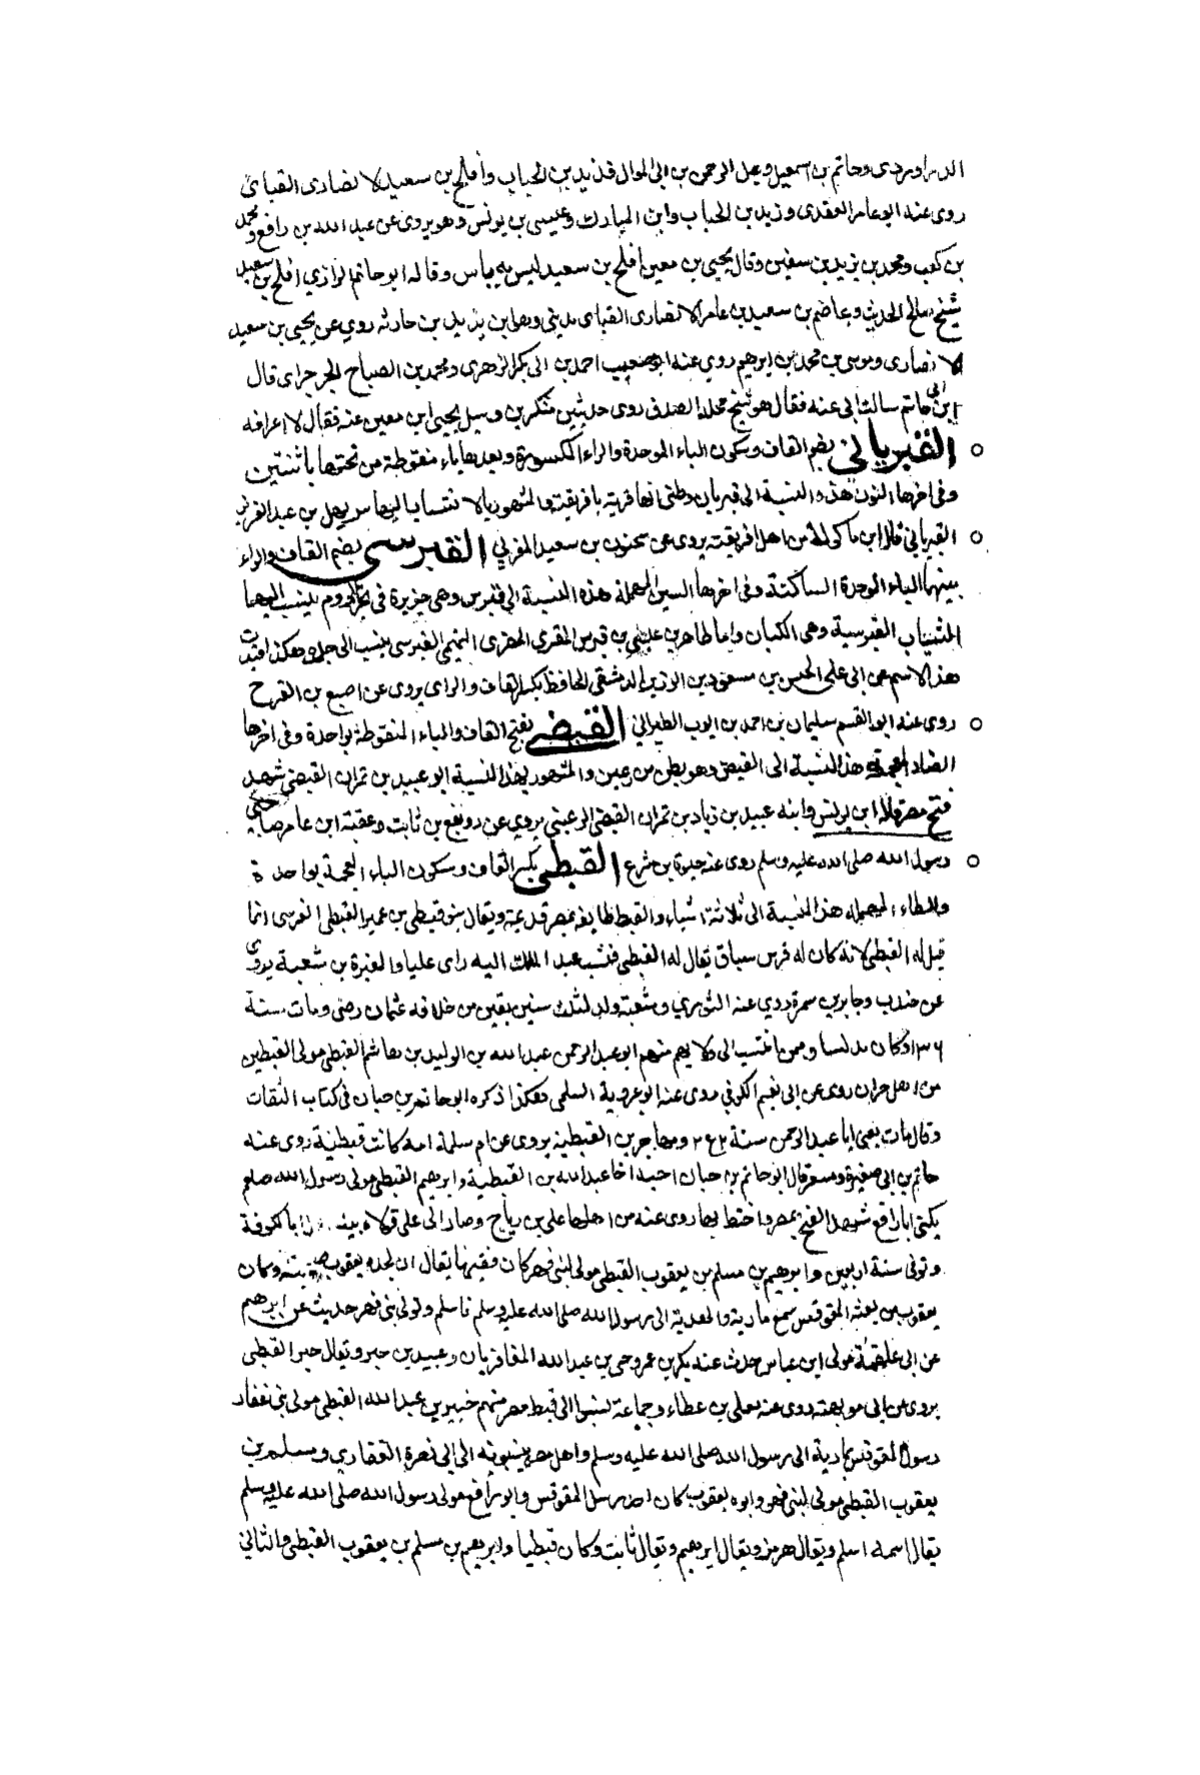 الدراوردي وحاتم بن اسمعيل وعبد الرحمن بن ابي الموال وزيد بن الحباب وأفلح بن سعيد الانصاري القبائي
روى عنه ابو عامر العقدي وزيد بن الحباب وابن المبارك وعيسى بن يونس وهو يروي عن عبد الله بن رافع ومحمد
بن كعب ومحمد بن يزيد بن سفين وقال يحيى بن معين افلح بن سعيد ليس به باس وقال ابو حاتم الرازي افلح بن سعيد
شيخ صالح الحديث وعاصم بن سعيد بن عامر الانصاري القبائ مديني وعلي بن يزيد بن حارثه روي عن يحيى بن سعيد
الانصاري وموسى بن محمد بن ابرهيم روي عنه ابو مصعب احمد بن ابي بكر الزهرى ومحمد بن الصباح الجرجراى قال
ابن ابي حاتم سالت ابي عنه فقال هو شيخ محله الصدق روى حديثين منكرين وسيل يحيى ابن معين عنه فقال لا اعرفه
القبرياني بضم القاف وسكون الباء الموحدة والراء المكسورة وبعدها ياء منقوطة من تحتها باثنتين
وفي اخرها النون هذه النسبة الى قبريان وظني انها قرية بافريقية والمشهور بالانتساب اليها سهل بن عبد العزيز
القبرياني قال ابن ماكولا من اهل افريقية يروى عن سحنون بن سعيد المغربي القبرسي بضم القاف والراء
بينهما الباء الموحدة الساكنة وفي اخرها السين المهملة هذه النسبة الى قبرس وهي جزيرة في بحر الروم ينسب اليها
الثياب القبرسية وهى الكتان واما طاهر بن عيسى بن قبرس المقري المصري التميمي القبرسي ينسب الى جده هكذا
هذا الاسم عن ابى علي الحسن بن مسعود بن الوزير الدمشقي الحافظ بكسر القاف والراى يروى عن اصبغ بن الفرج
روى عنه ابو القسم سليمان بن احمد بن ايوب الطبراني القبضي بفتح القاف والباء المنقوطة بواحدة وفي اخرها
الضاد المعجمة هذه النسبة الى القبض وهو بطن من رعين والمشهور بهذه النسبة ابو عبيد بن تمران القبضي شهد
فتح مصر قاله ابن يونس وابنه عبيد بن زياد بن تمران القبضي الرعيني يروي عن رويفع بن ثابت وعقبة ابن عامر صاحبي
رسول الله صلى الله عليه وسلم روى عنه حيوة بن شريح القبطي بكسر القاف وسكون الباء المعجمة بواحدة
والطاء المهملة هذه النسبة الى ثلاثة اشياء والقبط طايفة بمصر قديمة ويقال بنو قبطي بن عمير القبطي الفرسى انما
قيل له القبطي لانه كان له فرس سباق يقال له القبطي فنسب عبد الملك اليه راى عليا والمغيرة بن شعبة يروي
عن جندب وجابر بن سمرة روي عنه الثوري وشعبة ولد لثلث سنين بقين من خلافه عثمان رضي ومات سنة
١٣٦ وكان مدلسا وممن انتسب الى ولايهم منهم ابو عبد الرحمن عبد الله بن الوليد بن هاشم القبطي مولى القبطين
من اهل حران روى عن ابى نعيم الكوفي روى عنه ابو عروبة السلمي هكذا ذكره ابو حاتم بن حبان في كتاب الثقات
وقال مات يعنى ابا عبد الرحمن سنة ٢٤٢ ومهاجر بن القبطيه يروى عن ام سلمة امه كانت قبطية روى عنه
حاتم بن ابى صغيرة ومسعر قال ابو حاتم بن حبان احسبه اخا عبد الله بن القبطية وابرهيم القبطي مولى رسول الله صلعم
يكنى ابا رافع شهد الفتح بمصر واختط بها روى عنه من اهلها علي بن رباح وصار الى علي فولاه بيت بالكوفة
وتوفى سنة اربعين وابرهيم بن مسلم بن يعقوب القبطي مولى لبني فهر كان فقيها يقال ان لجده يعقوب صحبة وكان
يعقوب ممن بعثه المقوقس مع مارية والهدية الى رسول الله صلى الله عليه وسلم فاسلم وتولى بنى فهر حديث عن ابرهيم
عن ابي علقمة مولى ابن عباس حدث عنه بكر بن عمرو وحي بن عبد الله المعافريان وعبيد بن جبر ويقال حبر القبطي
يروى عن ابى مويهبه روى عنه يعلى بن عطاء وجماعة نسبوا الى قبط مصر منهم جبير بن عبد الله القبطي مولى بني غفار
رسول المقوقس بمارية الى رسول الله صلى الله عليه وسلم واهل مصر ينسبونه الى ابي نصرة الغفاري ومسلم بن
يعقوب القبطي مولى لبني فهر وابوه يعقوب كان احد رسل المقوقس وابو رافع مولى رسول الله صلى الله عليه وسلم
يقال اسمه اسلم ويقال هرمز ويقال ابرهيم ويقال ثابت وكان قبطيا وابرهيم بن مسلم بن يعقوب القبطي والثاني